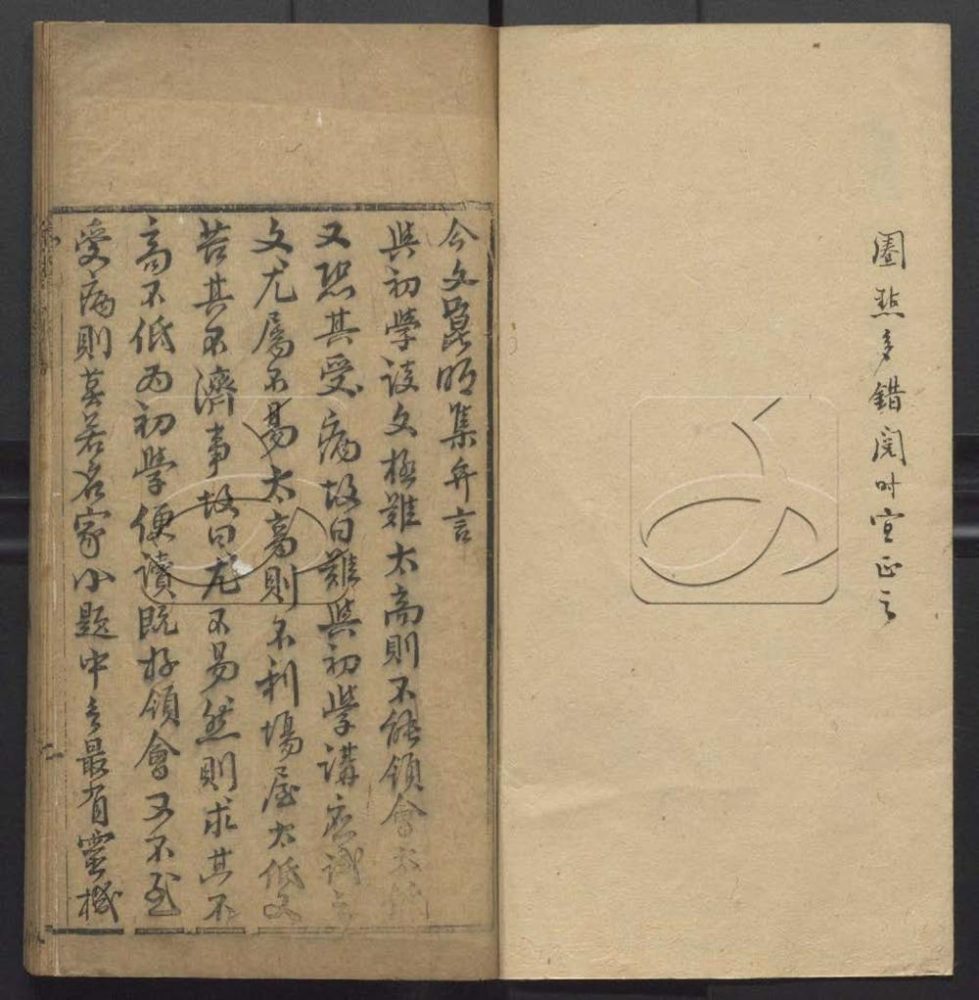 圈點多錯閱时宜正之
今文昆明集弁言
與初學談文極難太高則不能領會太低
又恐其受病故曰難與初學講應試之
文尤屬不易太高則不利場屋太低又
苦其不濟事故曰尤不易然則求其不
高不低為初學便讀既好領會又不至
受病則莫若名家小題中之最有靈機